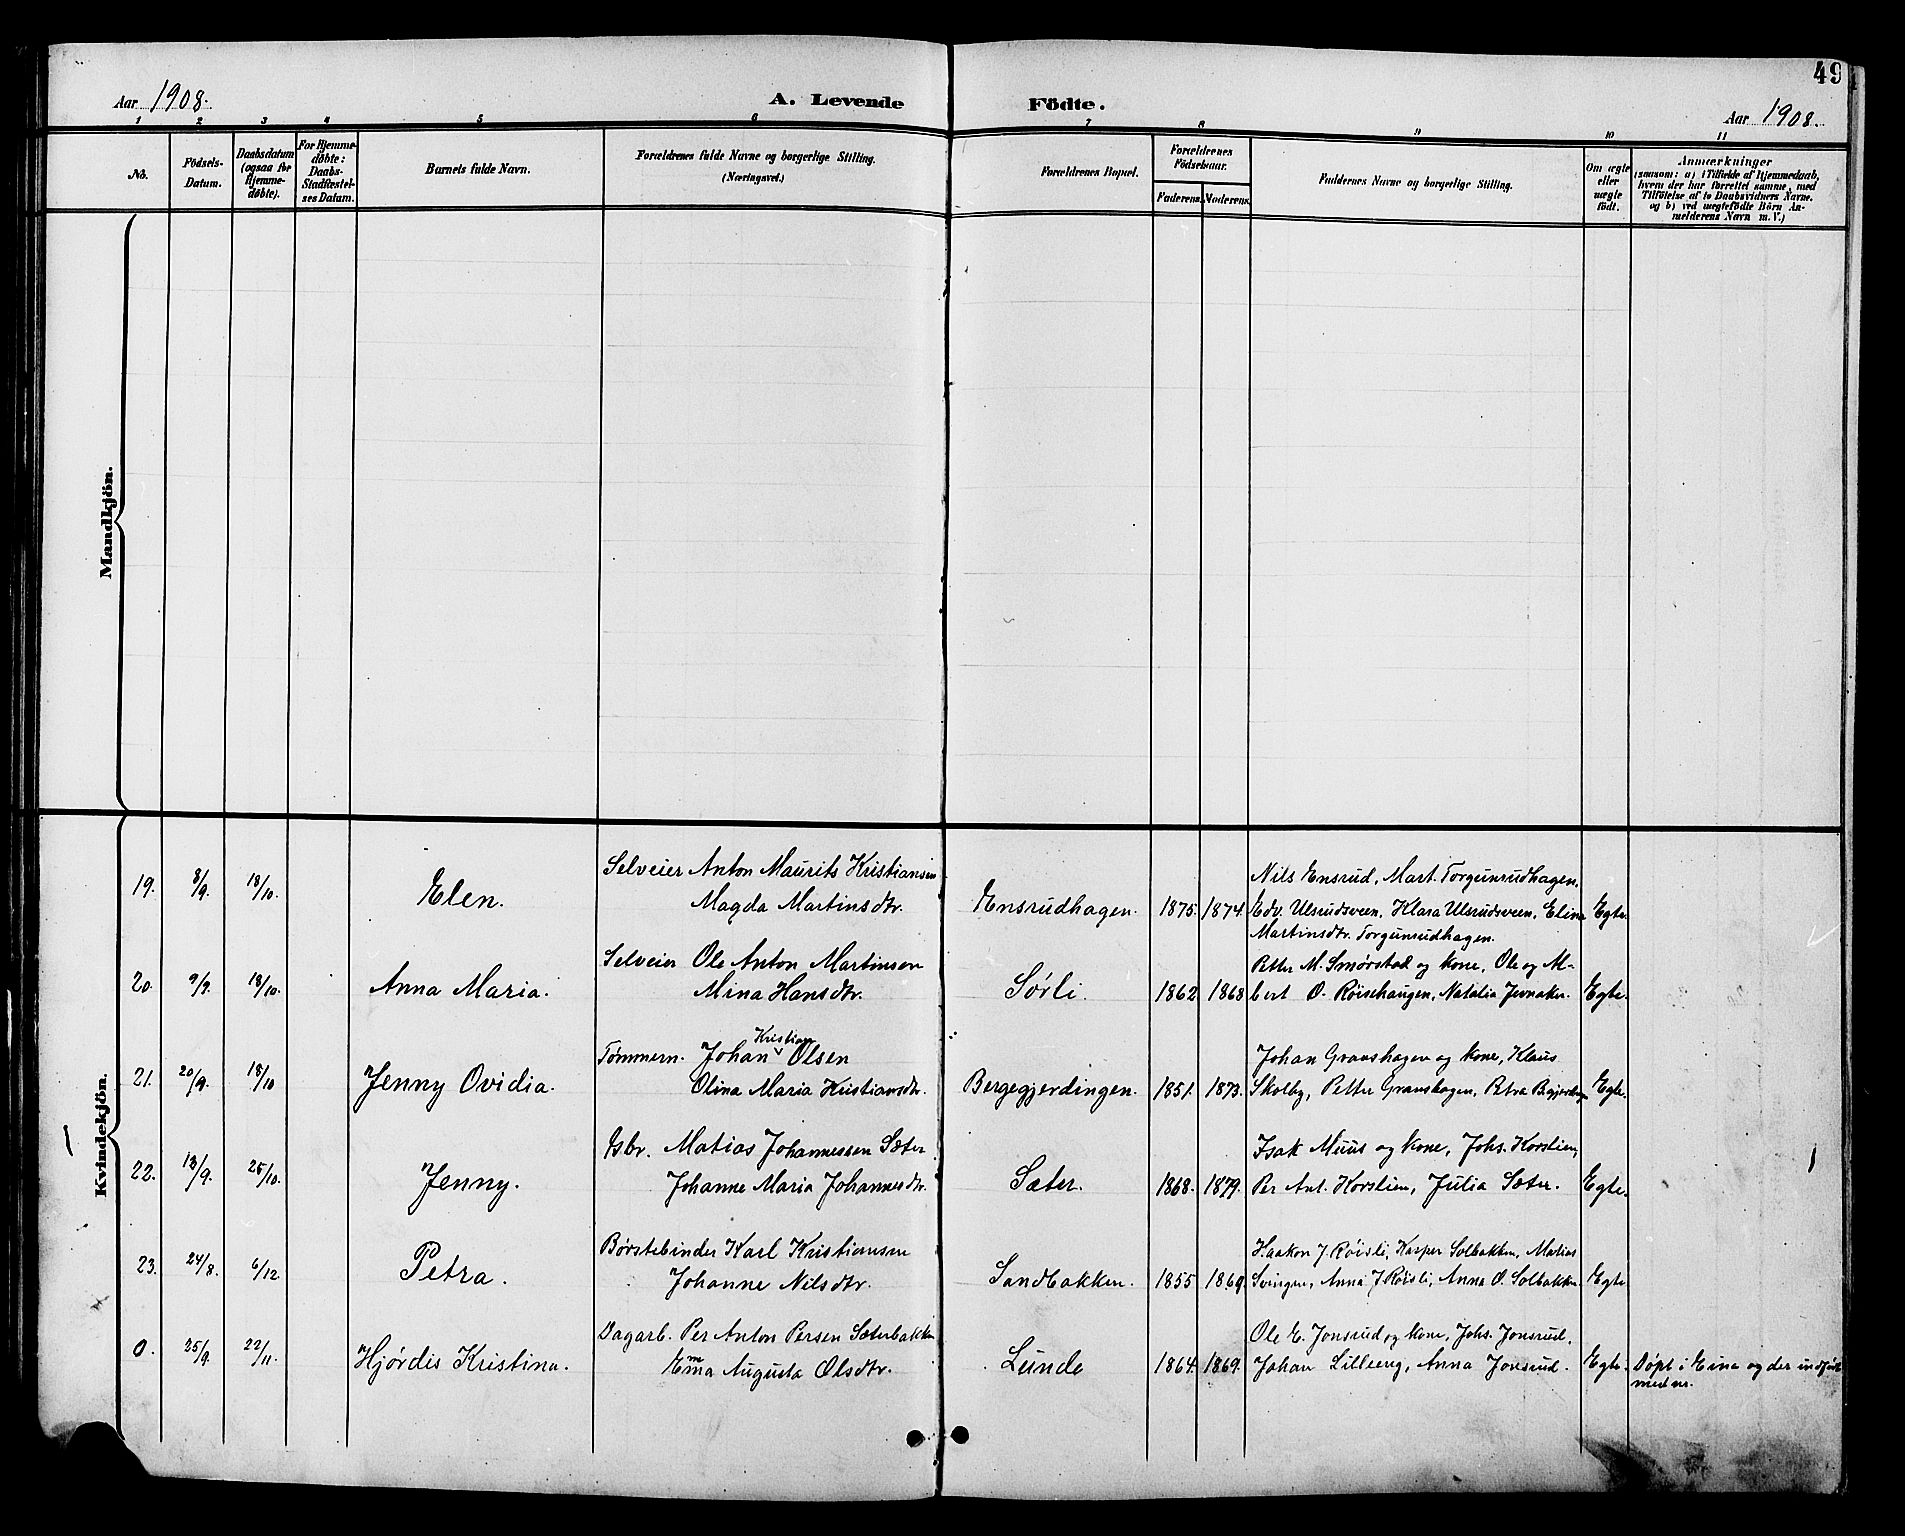 49
Aar 1908.
A. Levende Födte.
Aar 1908.
1 2 3 4 5 6 7 8 9 10 11
No.
Födsels-
Datum.
Daabsdatum
(ogsaa for
Hjemme-
døbte).
For Hjemme-
døbte:
Daabs-
Stadfæstel-
ses Datum.
Barnets fulde Navn.
Forældrenes fulde Navne og borgerlige Stilling.
(Næringsvei.)
Forældrenes Bopæl.
Forældrenes
Födselsaar.
Faderens. Moderens.
Faddernes Navne og borgerlige Stilling.
Om ægte
eller
uægte
födt.
Anmærkninger
(saasom: a) i Tilfælde af Hjemmedaab,
hvem der har forrettet samme, med
Tilföielse af to Daabsvidners Navne.
og b) ved uægtefödte Börn An-
melderens Navn m. V.)
Mandkjön.
Kvindekjön.
19. 8/9. 18/10. Elen.
Selveier Anton Maurits Kristiansen
Magda Martinsdtr.
Ensrudhagen. 1875. 1874.
Nils Ensrud, Mart. Torgunrudhagen,
Edv. Ulsrudsveen, Klara Ulsrudsveen, Elina
Martinsdtr. Torgunrudhagen.
Egte.
20. 9/9. 18/10. Anna Maria.
Selveier Ole Anton Martinsen
Mina Hansdtr.
Sørli. 1862 1868
Petter M. Smørstad og kone, Ole og Al-
bert O. Røisehaugen, Natalia Jevnaker.
Egte.
21. 20/9. 18/10 Jenny Ovidia.
Tømmerm. Johan Kristian Olsen
Olina Maria Kristiansdtr.
Bergegjerdingen. 1851. 1873.
Johan Granshagen og kone, Klaus
Skolby, Petter Granshagen, Petra
Egte.
22. 13/9. 25/10. Jenny.
Gbr. Matias Johannessen Sæter
Johanne Maria Johannesdtr.
Sæter. 1868. 1879.
Isak Muus og kone, Johs. Korslien,
Per Ant. Korslien, Julia Sæter.
Egte.
23. 24/8. 6/12. Petra.
Børstebinder Karl Kristiansen
Johanne Nilsdtr.
Sandbakken. 1855 1869
Haakon J. Røisli, Kasper Solbakken, Matias
Svingen, Anna J. Røisli, Anna O. Solbakken.
Egte
0. 25/9. 22/11. Hjørdis Kristina.
Dagarb. Per Anton Persen Sæterbakken
Emma Augusta Olsdtr.
Lunde 1864. 1869.
Ole E. Jonsrud og kone, Johs. Jonsrud,
Johan Lilleeng, Anna Jonsrud.
Egte.
Døpt i Eina og der indført
med nr.